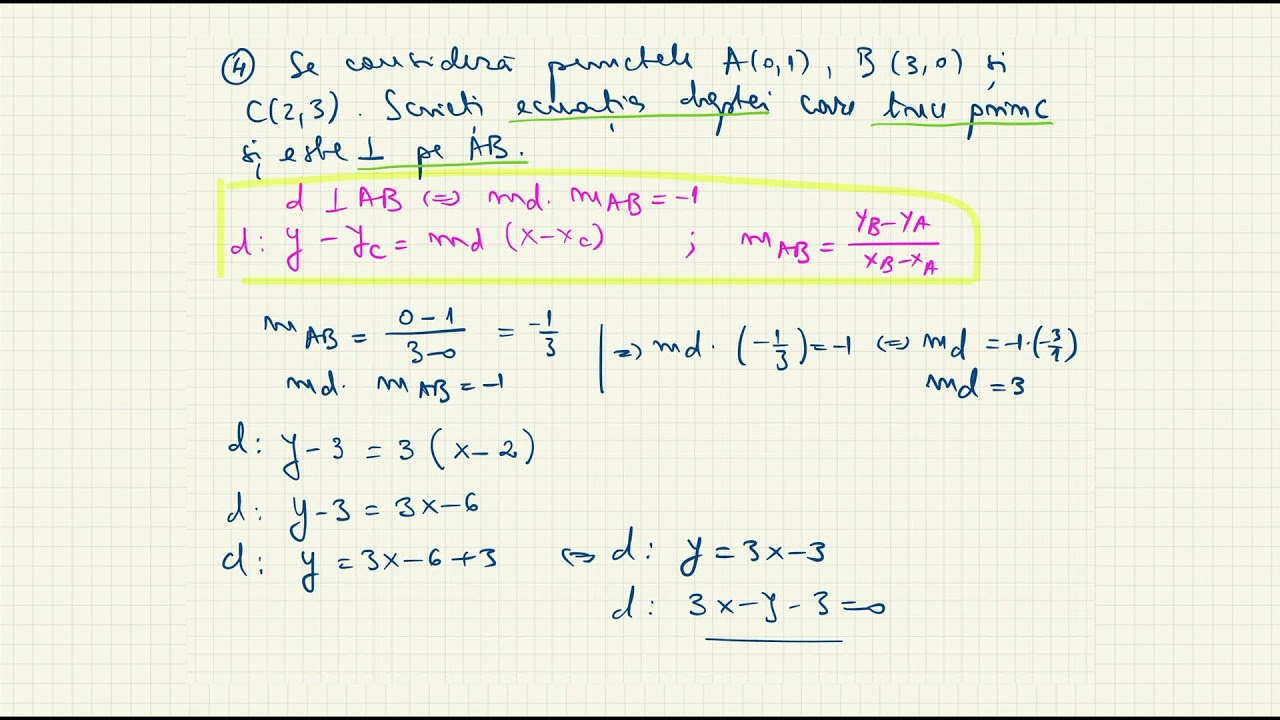 ④ Se consideră punctele A(0,1), B(3,0) și
C(2,3). Scrieți ecuația dreptei care trece prin C
și este ⊥ pe AB.
d ⊥ AB (=) md. mAB = -1
d: y - yC = md (x-xC) ; mAB = (yB-yA)/(xB-xA)
mAB = (0-1)/(3-0) = -1/3
md. mAB = -1
=> md. (-1/3) = -1 (=) md = -1·(-3/1)
md = 3
d: y-3 = 3(x-2)
d: y-3 = 3x-6
d: y = 3x-6+3 (=) d: y = 3x-3
d: 3x-y-3=0